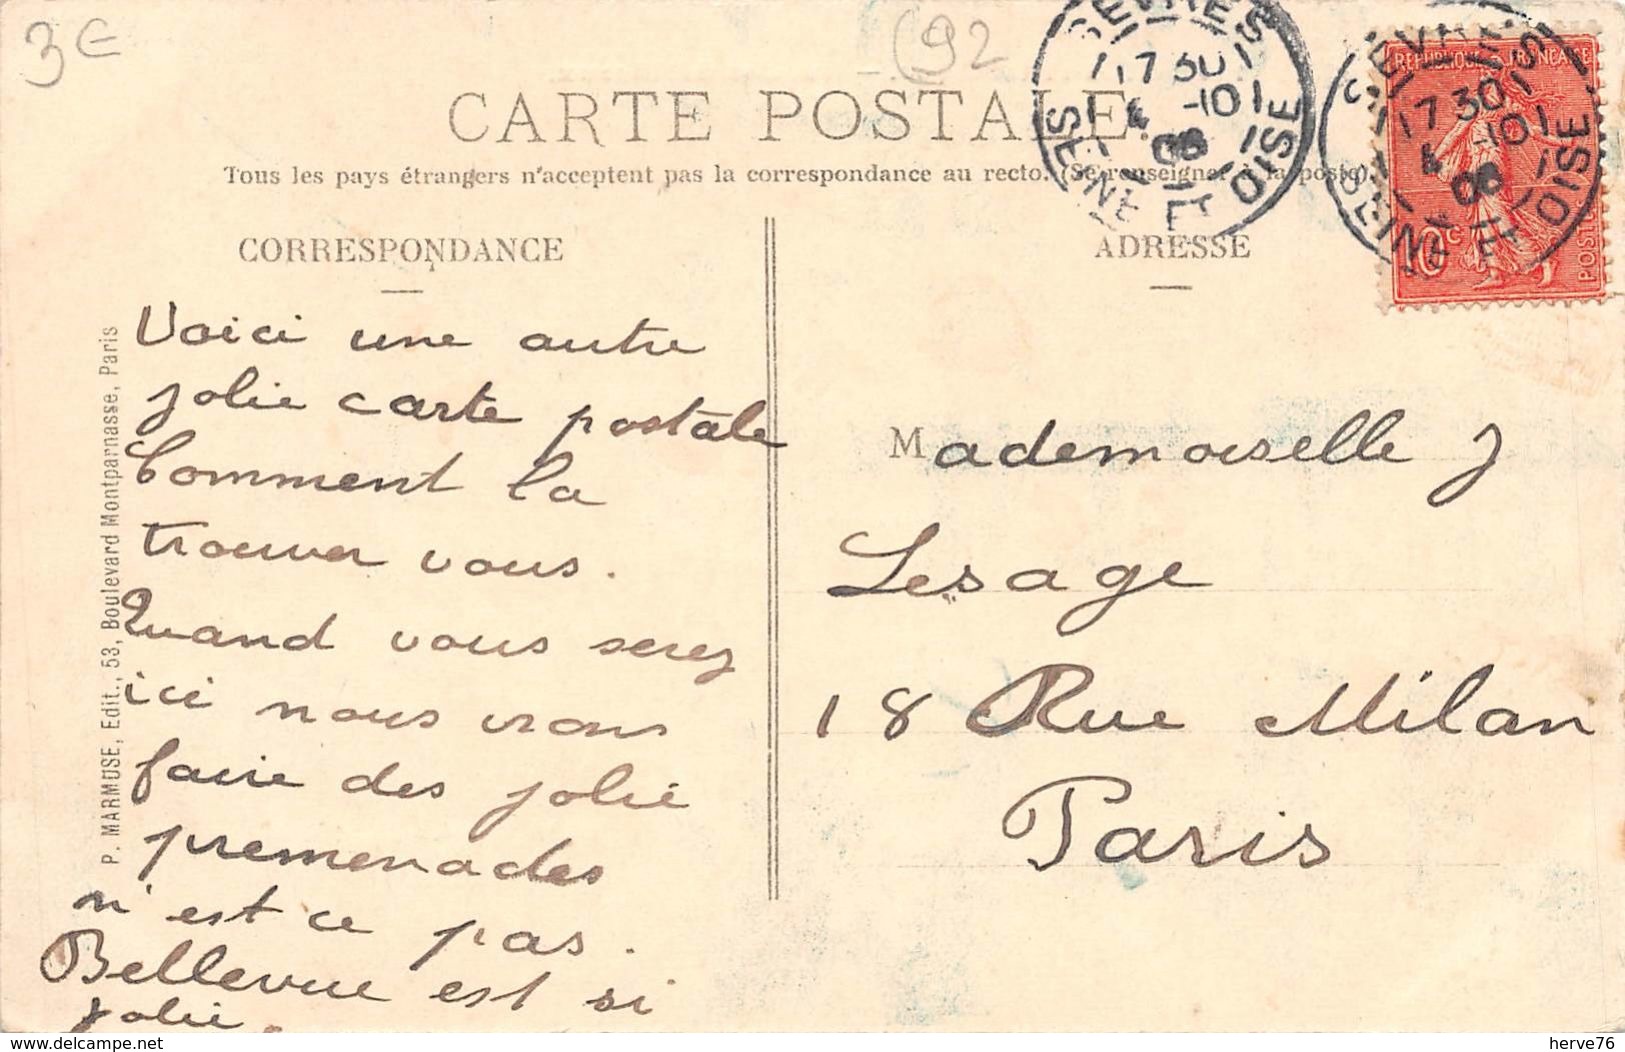 3€
(92
CARTE POSTALE
Tous les pays étrangers n'acceptent pas la correspondance au recto. (Se renseigner à la poste).
SEVRES
17 30
4 -10
08
SEINE ET OISE
SEVRES
17 30
4 -10
08
SEINE ET OISE
REPUBLIQUE FRANÇAISE
10c
POSTES
CORRESPONDANCE
Voici une autre
jolie carte postale
Comment la
trouver vous.
Quand vous serez
ici nous irons
faire des jolie
promenades
n'est ce pas.
Bellevue est si
jolie.
P. MARMUSE, Edit., 53, Boulevard Montparnasse, Paris
ADRESSE
Mademoiselle J
Lesage
18 Rue Milan
Paris
delcampe.net
herve76